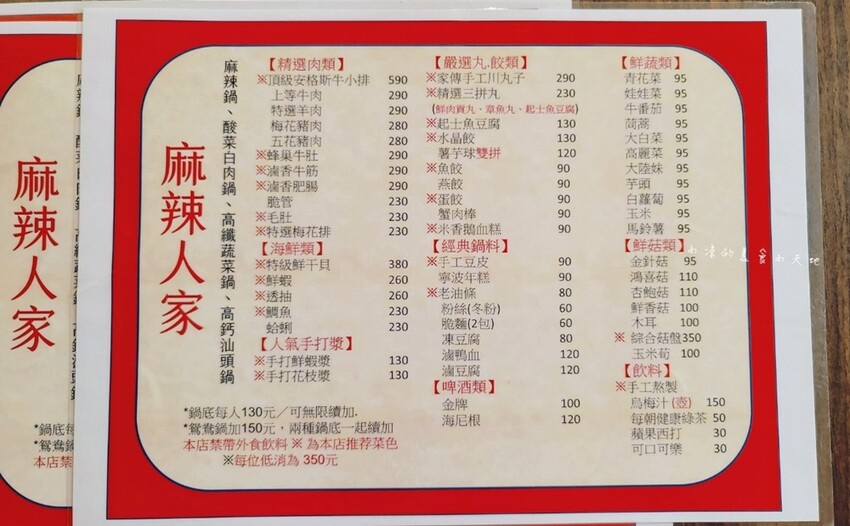 麻辣人家
麻辣鍋、酸菜白肉鍋、高纖蔬菜鍋、高鈣汕頭鍋
【精選肉類】
※頂級安格斯牛小排 590
上等牛肉 290
特選羊肉 290
梅花豬肉 280
五花豬肉 280
※蜂巢牛肚 290
※滷香牛筋 290
※滷香肥腸 290
脆管 230
※毛肚 230
※特選梅花排 230
【海鮮類】
※特級鮮干貝 380
※鮮蝦 260
※透抽 260
※鯛魚 230
蛤蜊 230
【人氣手打漿】
※手打鮮蝦漿 130
※手打花枝漿 130
【嚴選丸.餃類】
※家傳手工川丸子 290
※精選三拼丸 230
(鮮肉貢丸、章魚丸、起士魚豆腐)
※起士魚豆腐 130
※水晶餃 130
薯芋球雙拼 120
※魚餃 90
燕餃 90
※蛋餃 90
蟹肉棒 90
※米香鵝血糕 90
【經典鍋料】
※手工豆皮 90
寧波年糕 90
※老油條 80
粉絲(冬粉) 60
脆麵(2包) 60
凍豆腐 80
滷鴨血 120
滷豆腐 120
【啤酒類】
金牌 100
海尼根 120
【鮮蔬類】
青花菜 95
娃娃菜 95
牛番茄 95
茼蒿 95
大白菜 95
高麗菜 95
大陸妹 95
芋頭 95
白蘿蔔 95
玉米 95
馬鈴薯 95
【鮮菇類】
金針菇 95
鴻喜菇 110
杏鮑菇 110
鮮香菇 100
木耳 100
※ 綜合菇盤350
玉米筍 100
【飲料】
※手工熬製
烏梅汁(壺) 150
每朝健康綠茶 50
蘋果西打 30
可口可樂 30
*鍋底每人130元／可無限續加.
*鴛鴦鍋加150元，兩種鍋底一起續加
本店禁帶外食飲料 ※ 為本店推荐菜色
※每位低消為 350元
麻辣人家
*鍋底每
*鴛鴦鍋
本店禁